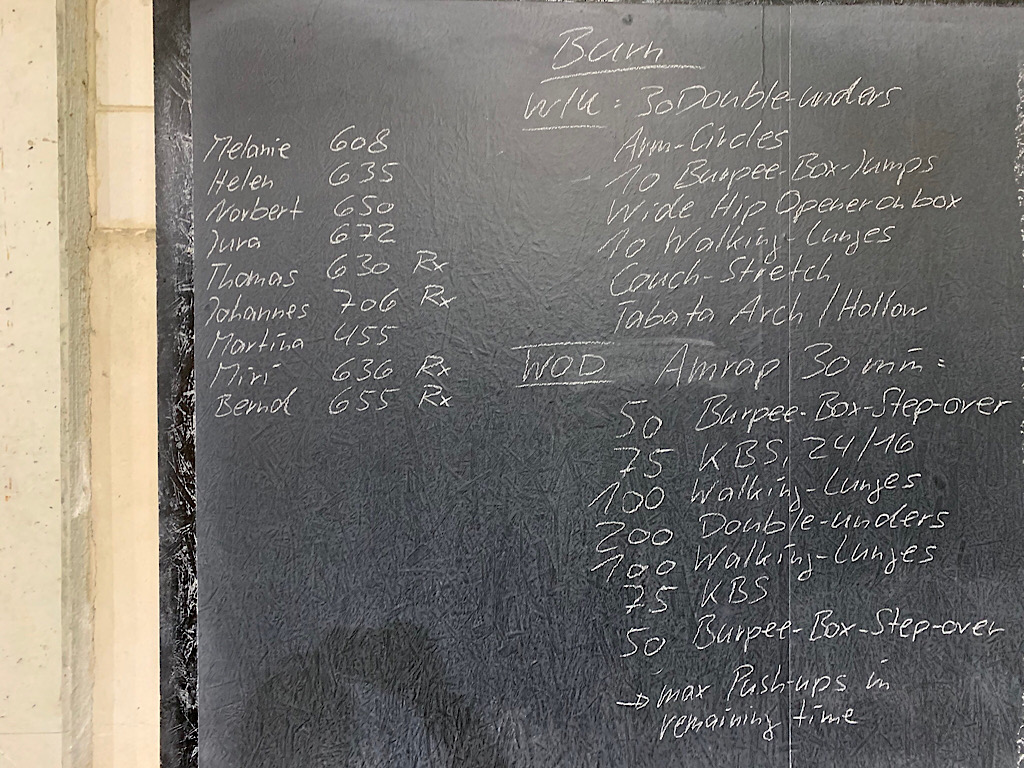 Burn
W/U: 30 Double-unders
Arm-Circles
10 Burpee-Box-Jumps
Wide Hip Opener on box
10 Walking-Lunges
Couch-Stretch
Tabata Arch / Hollow
WOD Amrap 30 min:
50 Burpee-Box-Step-over
75 KBS, 24/16
100 Walking-Lunges
200 Double-unders
100 Walking-Lunges
75 KBS
50 Burpee-Box-Step-over
→ max Push-ups in
remaining time
Melanie 608
Helen 635
Norbert 650
Jura 672
Thomas 630 Rx
Johannes 706 Rx
Martina 455
Miri 636 Rx
Bernd 655 Rx